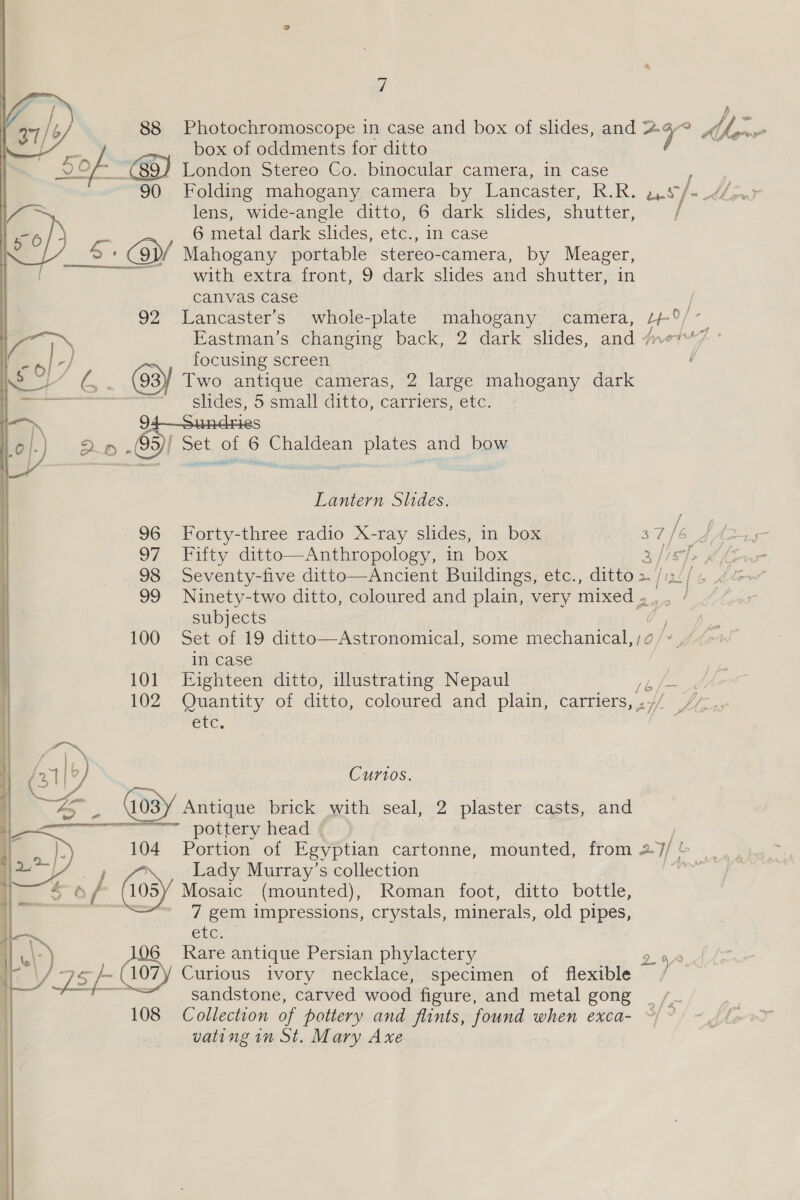 7
37/6 88 Photochromoscope in case and box of slides, and
box of oddments for ditto
50/- 89 London Stereo Co. binocular camera, in case
90 Folding mahogany camera by Lancaster, R.R.
lens, wide-angle ditto, 6 dark slides, shutter,
6 metal dark slides, etc., in case
50/- 91 Mahogany portable stereo-camera, by Meager,
with extra front, 9 dark slides and shutter, in
canvas case
92 Lancaster's whole-plate mahogany camera,
Eastman's changing back, 2 dark slides, and
focusing screen
50/- 93 Two antique cameras, 2 large mahogany dark
slides, 5 small ditto, carriers, etc.
94 Sundries
95 Set of 6 Chaldean plates and bow
Lantern Slides.
96 Forty-three radio X-ray slides, in box 37/6
97 Fifty ditto—Anthropology, in box
98 Seventy-five ditto—Ancient Buildings, etc., ditto
99 Ninety-two ditto, coloured and plain, very mixed
subjects
100 Set of 19 ditto—Astronomical, some mechanical,
in case
101 Eighteen ditto, illustrating Nepaul
102 Quantity of ditto, coloured and plain, carriers,
etc.
Curios.
103 Antique brick with seal, 2 plaster casts, and
pottery head
104 Portion of Egyptian cartonne, mounted, from
Lady Murray's collection
105 Mosaic (mounted), Roman foot, ditto bottle,
7 gem impressions, crystals, minerals, old pipes,
etc.
106 Rare antique Persian phylactery
107 Curious ivory necklace, specimen of flexible
sandstone, carved wood figure, and metal gong
108 Collection of pottery and flints, found when exca-
vating in St. Mary Axe